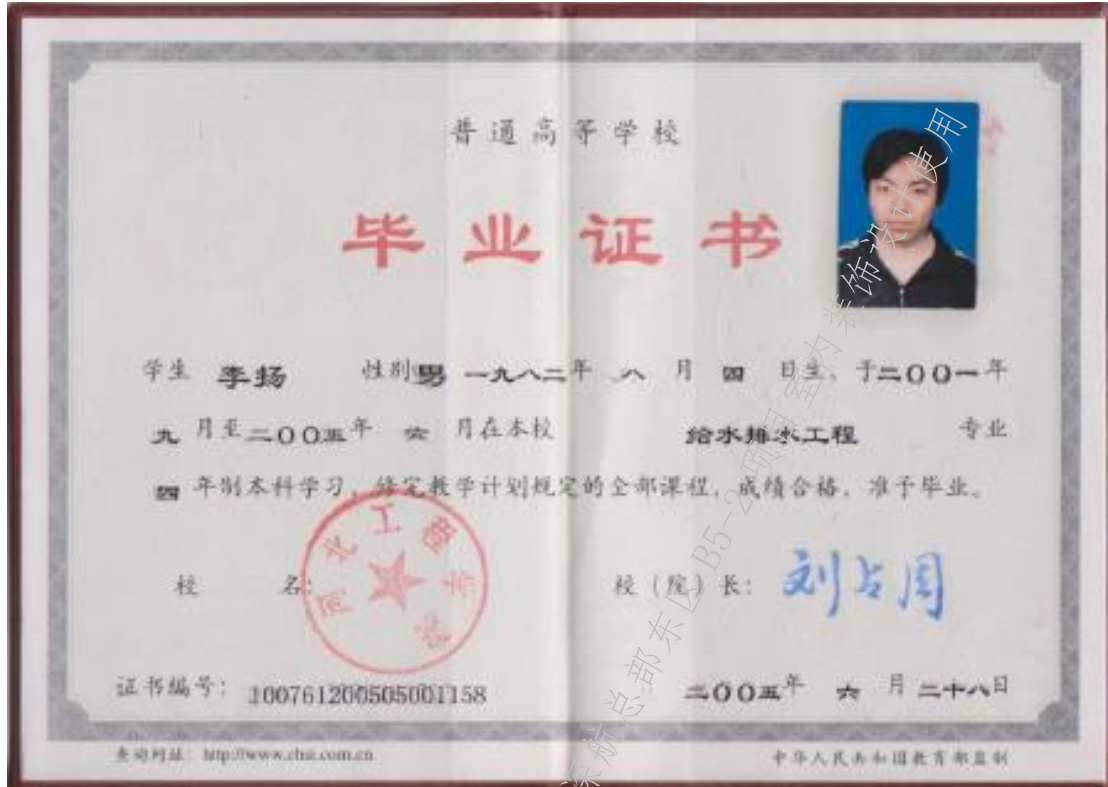 普通高等学校
毕业证书
学生 李扬 性别 男 一九八二年 八 月 四 日生, 于二〇〇一年
九 月至二〇〇五年 六 月在本校 给水排水工程 专业
四 年制本科学习, 修完教学计划规定的全部课程, 成绩合格, 准予毕业。
校 名: 校(院)长: 刘占周
河北工程学院
证书编号: 100761200505001158 二〇〇五年 六 月 二十八日
查询网址: http://www.chsi.com.cn 中华人民共和国教育部监制
深航总部东区B5-2项目室内装饰设计使用